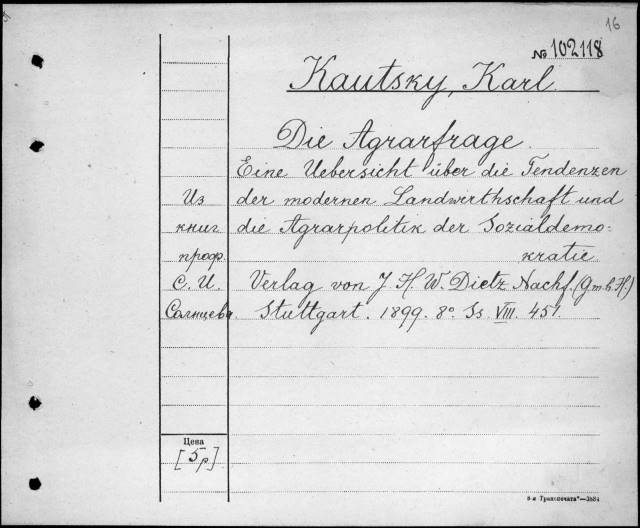 16
№ 102118
Kautsky, Karl
Die Agrarfrage.
Eine Uebersicht über die Tendenzen
Из der modernen Landwirthschaft und
книг die Agrarpolitik der Sozialdemo-
проф. kratie.
С. И. Verlag von J. H. W. Dietz Nachf. (G.m.b.H.)
Солнцева. Stuttgart. 1899. 8° Ss. VIII. 451.
Цена
[5р]
„Транспечать“—3884